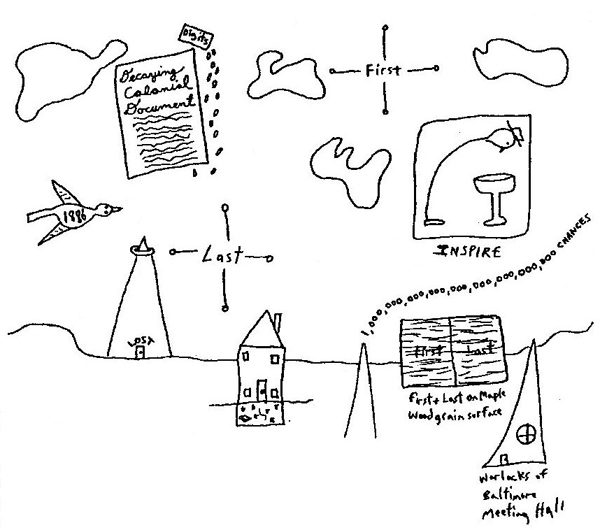 Digits
First
Decaying
Colonial
Document
1886
INSPIRE
Last
LOST
1,000,000,000,000,000,000,000,000,000 CHANCES
First Last
First + Last on Maple
Woodgrain surface
Warlocks of
Baltimore
Meeting Hall